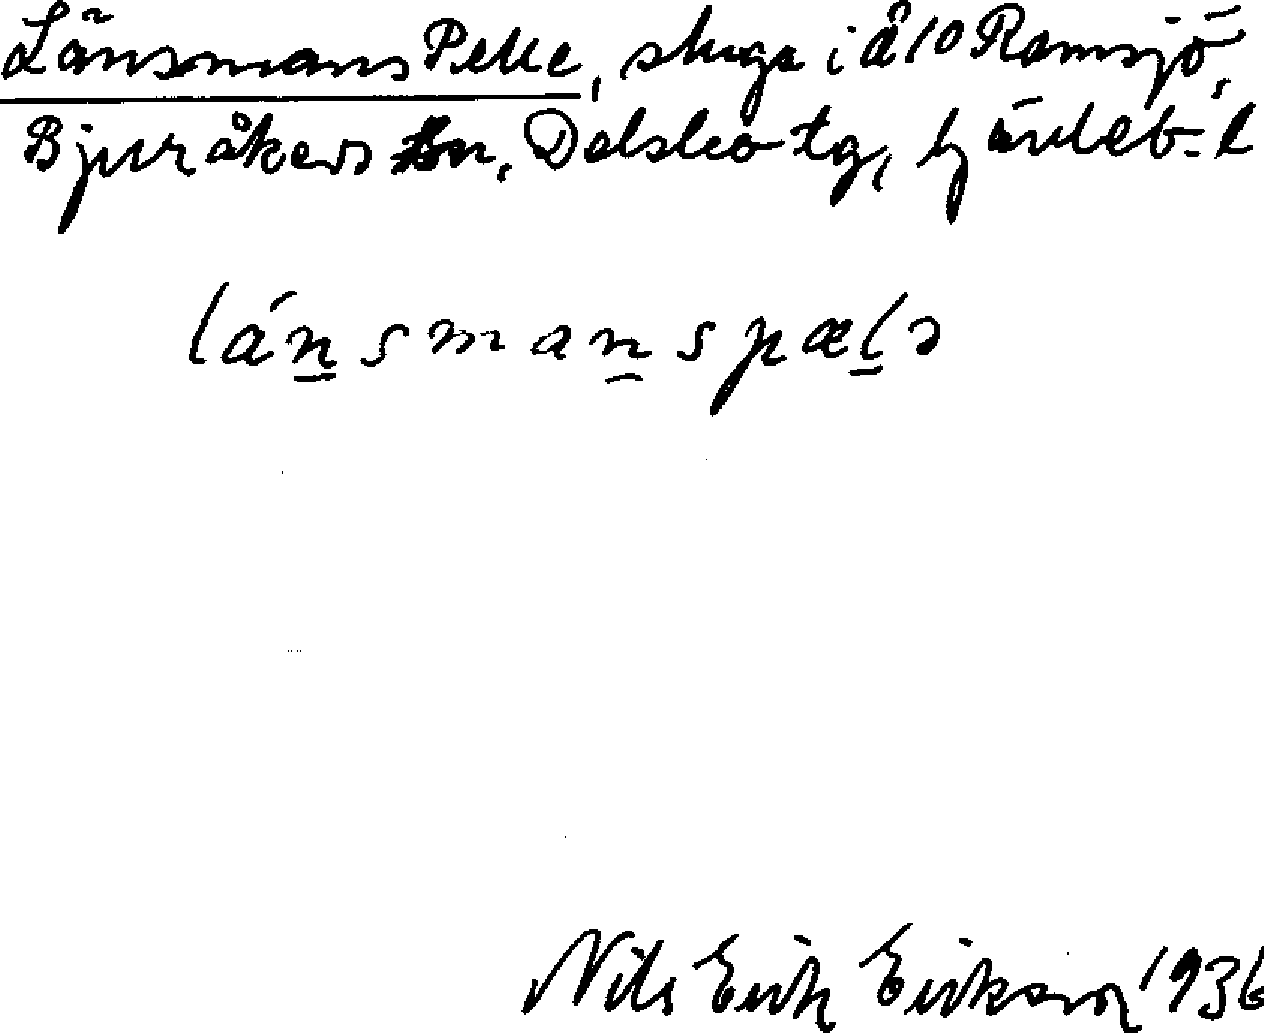 Länsmans Pelle, stuga i å 10 Ramsjö,
Bjuråkers sn, Delsbo tg, Gävleb. l
länsmanspælə
Nils Erik Eriksson 1936